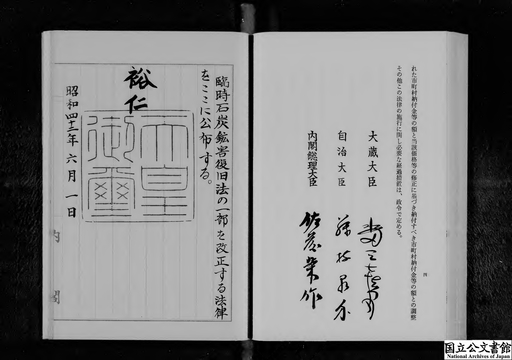 れた市町村納付金等の額と当該価格等の修正に基づき納付すべき市町村納付金等の額との調整
その他この法律の施行に関し必要な経過措置は、政令で定める。
四
大蔵大臣 水田三喜男
自治大臣 藤枝泉介
内閣総理大臣 佐藤榮作
臨時石炭鉱害復旧法の一部を改正する法律
をここに公布する。
裕仁
天皇
御璽
昭和四十二年六月一日
内閣
国立公文書館
National Archives of Japan